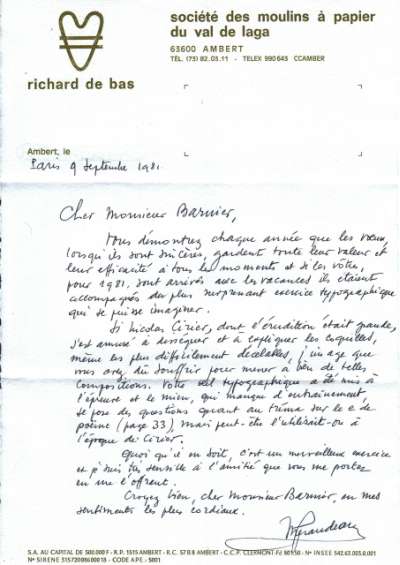 société des moulins à papier
du val de laga
63600 AMBERT
TÉL. (73) 82.03.11 - TELEX 990643 CCAMBER
richard de bas
Ambert, le
Paris 9 Septembre 1981.
Cher Monsieur Barnier,
Vous démontrez chaque année que les vœux,
lorsqu'ils sont sincères, gardent toute leur valeur et
leur efficacité à tous les moments et si les vôtres,
pour 1981, sont arrivés avec les vacances ils étaient
accompagnés du plus surprenant exercice typographique
qui se puisse imaginer.
Si Nicolas Cirier, dont l'érudition était grande,
s'est amusé à disséquer et à expliquer les coquilles,
même les plus difficilement décelables, j'imagine que
vous avez dû souffrir pour mener à bien de telles
compositions. Votre œil typographique a été mis à
l'épreuve et le mien, qui manque d'entraînement,
se pose des questions quant au tréma sur le e de
poème (page 33), mais peut-être l'utilisait-on à
l'époque de Cirier.
Quoi qu'il en soit, c'est un merveilleux exercice
et je suis très sensible à l'amitié que vous me portez
en me l'offrant.
Croyez bien, cher Monsieur Barnier, en mes
sentiments les plus cordiaux.
S.A. AU CAPITAL DE 500.000 F - R.P. 1515 AMBERT - R.C. 57 B 8 AMBERT - C.C.P. CLERMONT-Fd - N° INSEE
N° SIRENE - CODE APE - 5001